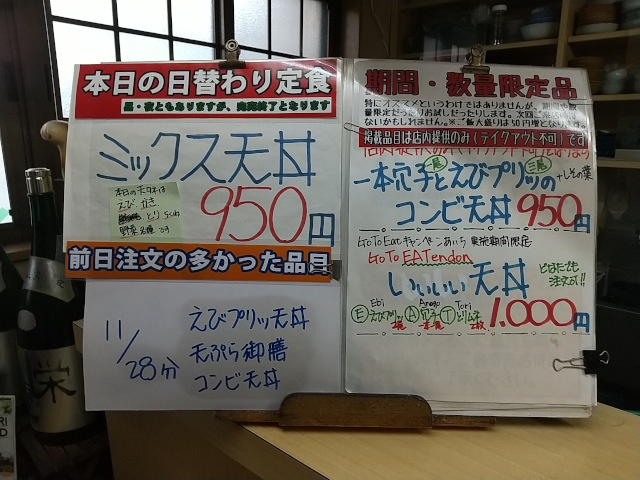 本日の日替わり定食
昼・夜ともありますが、完売終了となります
ミックス天丼
本日の天タネは
えび かき
とり
野菜
950円
前日注文の多かった品目
11/28分
えびプリッ天丼
天ぷら御膳
コンビ天丼
期間・数量限定品
特にオススメというわけではありませんが、期間や数
量限定だったりお試しだったりします。次回ご
ないかもしれません。※ご飯大盛りは50円増となり
掲載品目は店内提供のみ(テイクアウト不可)です
一本穴子とえびプリッの
二尾
+しその葉
コンビ天丼 950円
GoToEatキャンペーンあいち 実施期間限定
GoTo EATendon
いいいい天丼
どなたでも
注文可!!
Ebi Anago Tori
Eえびプリッ A穴子 Tとりムネ
2尾 一本 2枚
1.000円
栄